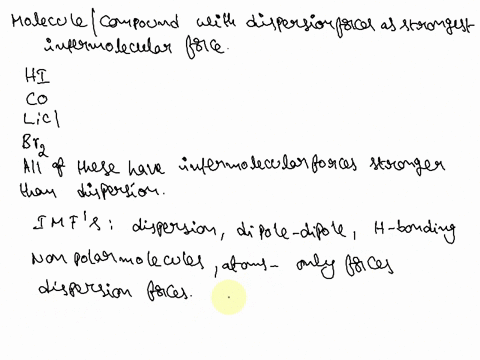 Molecule/Compound with dispersion forces as strongest
intermolecular force.
HI
CO
LiCl
Br2
All of these have intermolecular forces stronger
than dispersion.
IMF's: dispersion, dipole-dipole, H-bonding
Non polar molecules, atoms - only forces
dispersion forces.